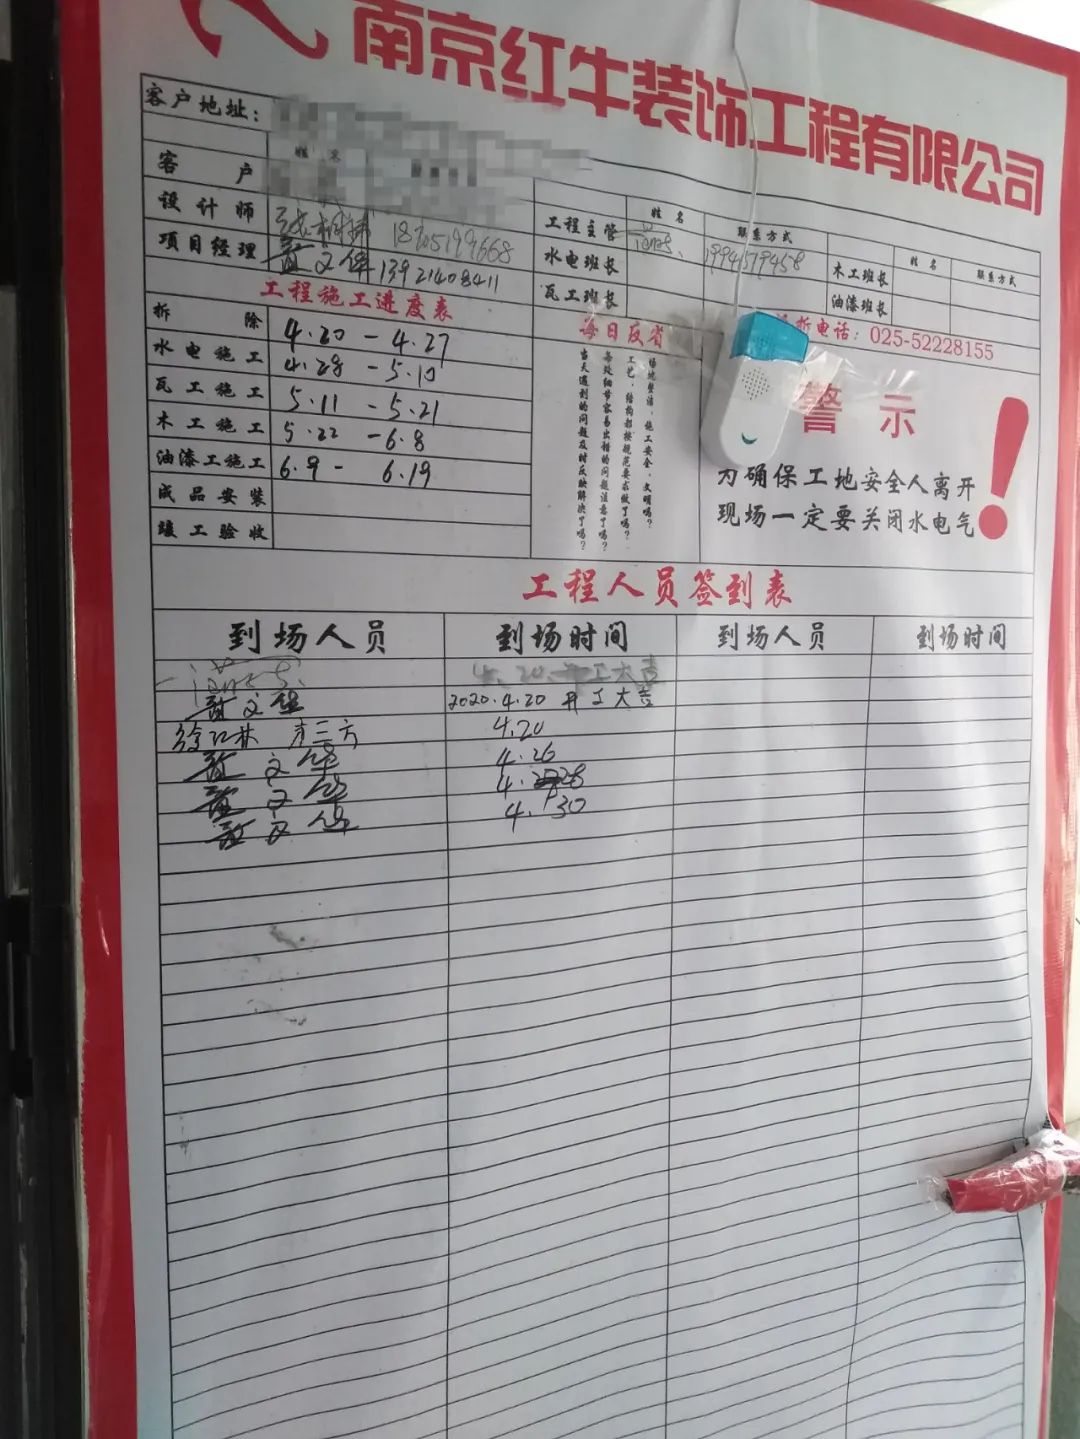 南京红牛装饰工程有限公司
客户地址：
姓 名
客 户
设计师 18705199668
项目经理 黄文华 13921408411
姓 名 联系方式 姓 名 联系方式
工程主管 1994579458
水电班长 木工班长
瓦工班长 油漆班长
工程施工进度表
拆 除 4.20 - 4.27
水电施工 4.28 - 5.10
瓦工施工 5.11 - 5.21
木工施工 5.22 - 6.8
油漆工施工 6.9 - 6.19
成品安装
竣工验收
每日反省
场地整洁、施工安全、文明吗？
工艺、结构都按规范要求做了吗？
各处细节容易出错的问题注意了吗？
当天遇到的问题及时反映解决了吗？
电话：025-52228155
警示
为确保工地安全人离开
现场一定要关闭水电气
工程人员签到表
到场人员 到场时间 到场人员 到场时间
4.20 开工大吉
黄文华 2020.4.20 开工大吉
4.20
黄文华 4.26
黄文华 4.28
黄文华 4.30